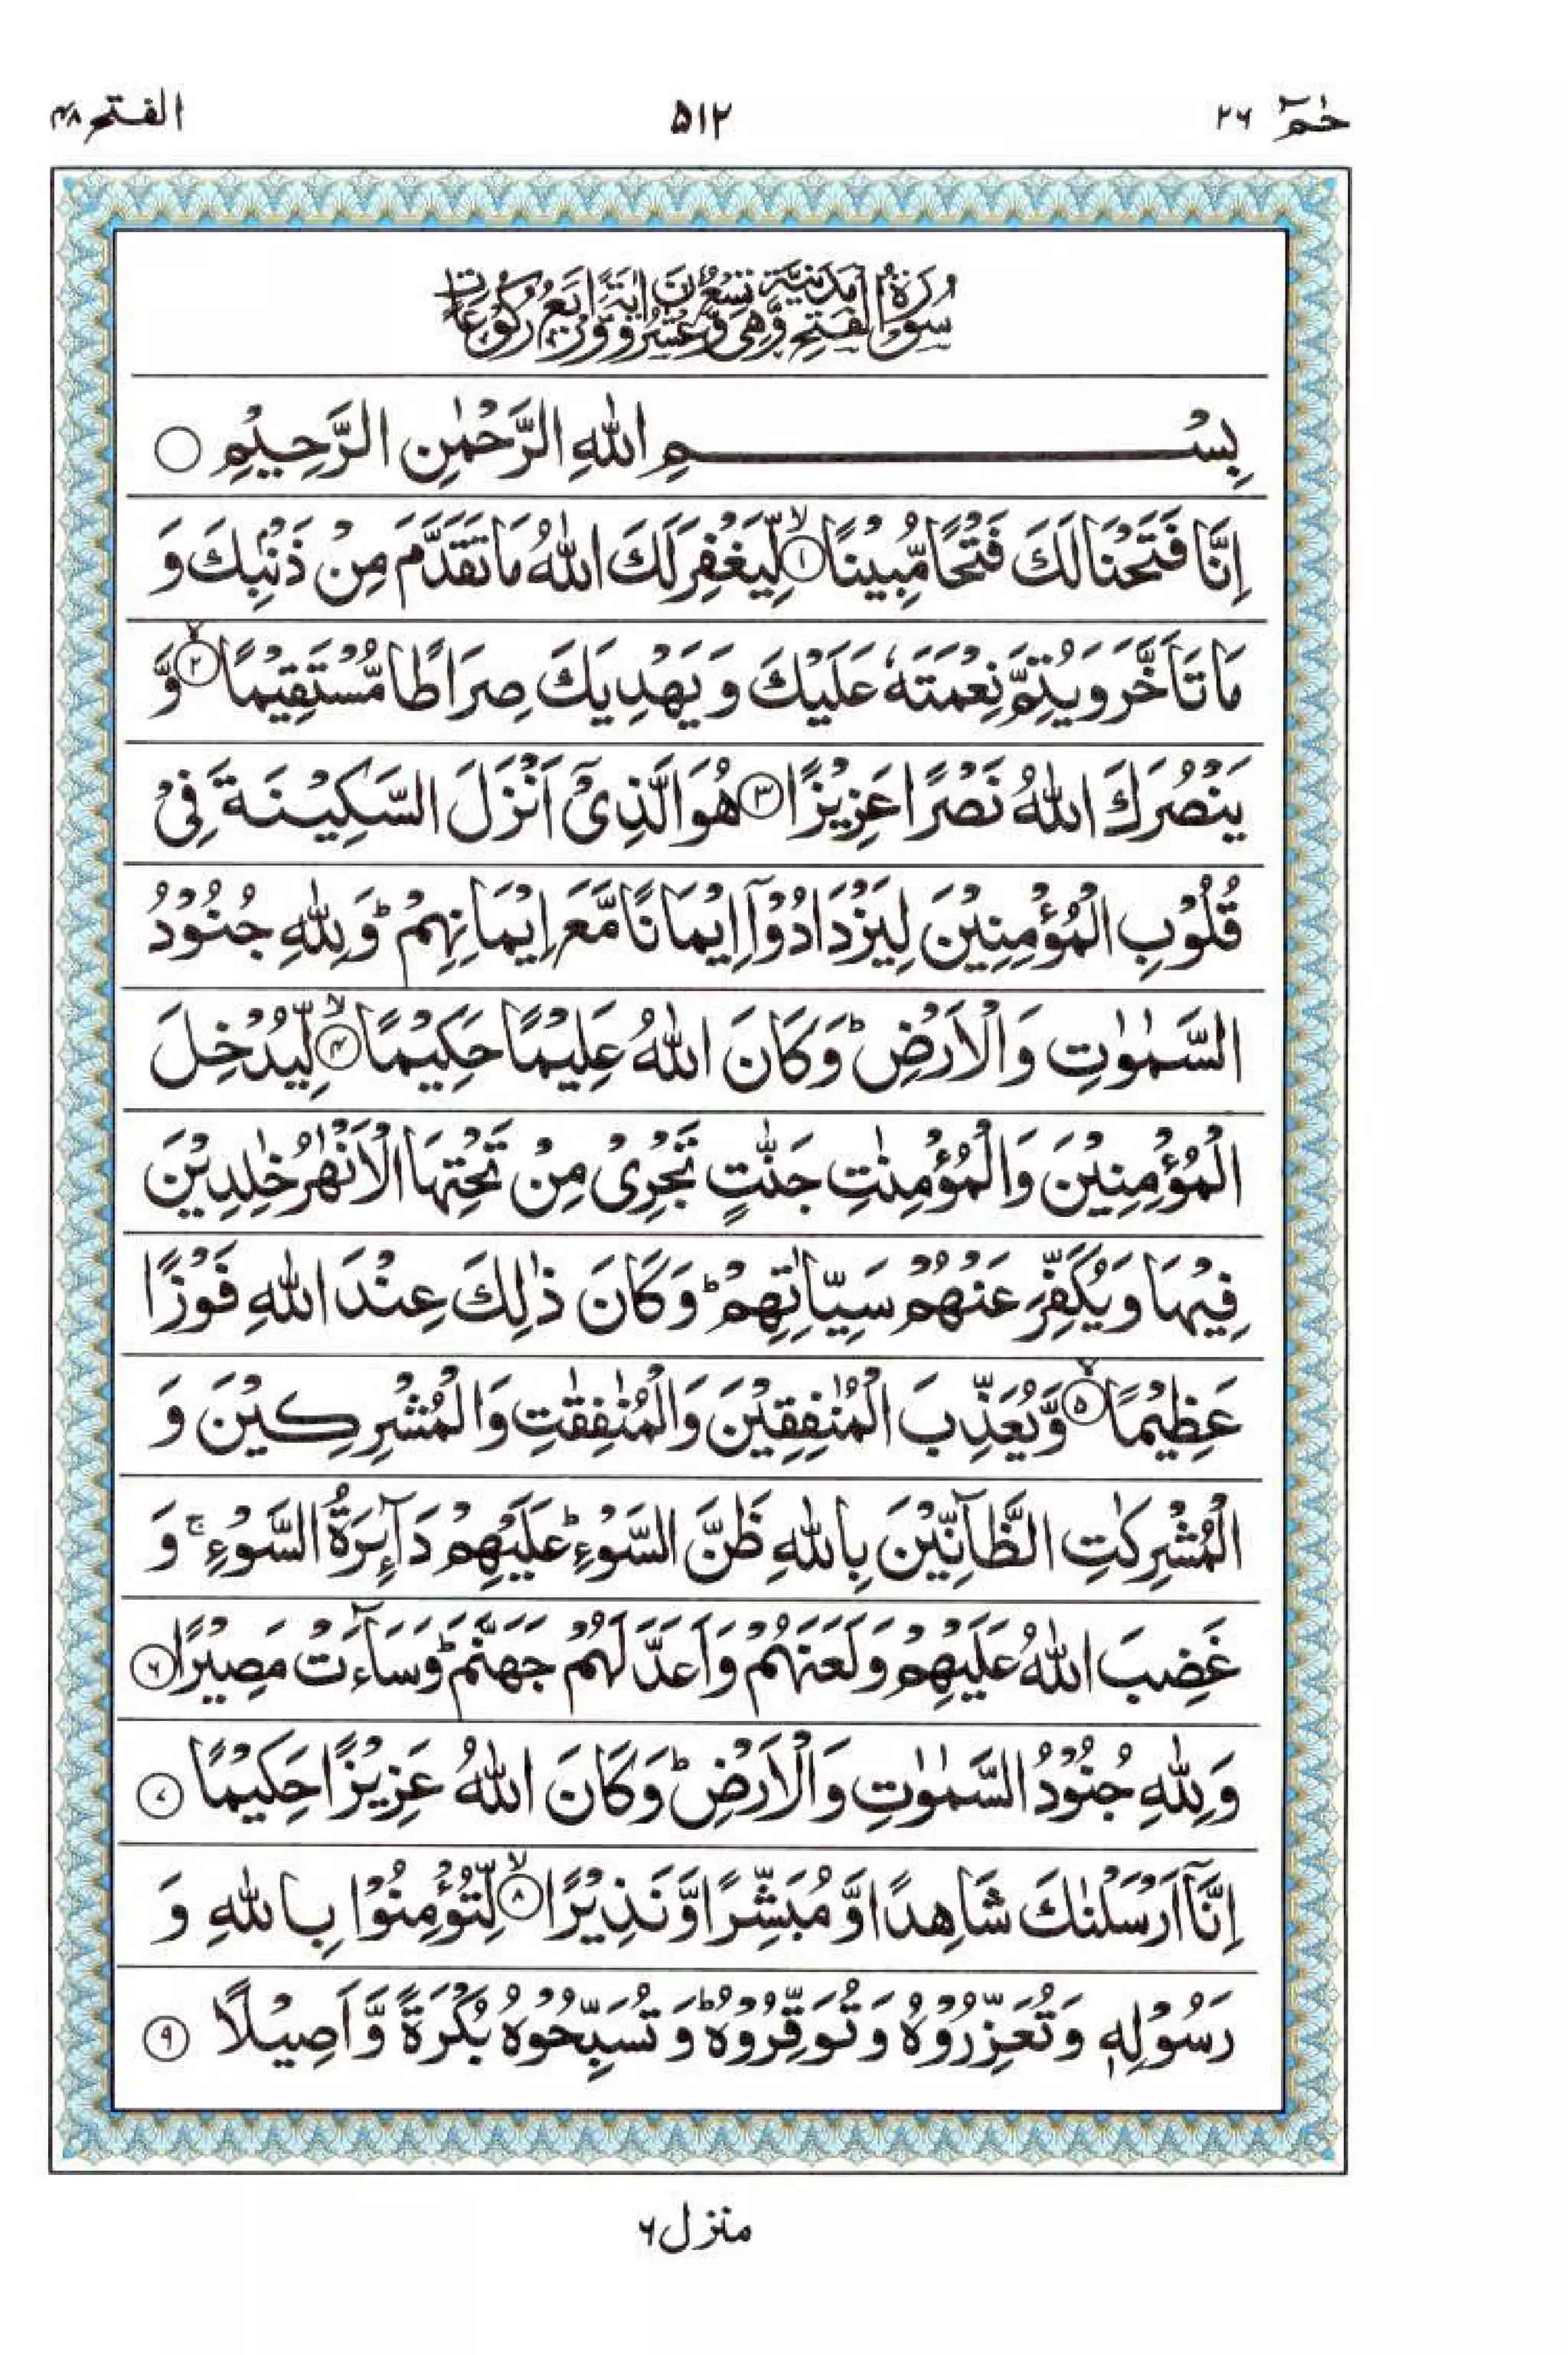 حٰمٓ ٢٦ ۵۱۲ الفتح ۴۸
سُوْرَةُ الْفَتْحِ مَدَنِيَّةٌ وَّهِىَ تِسْعٌ وَّعِشْرُوْنَ اٰيَةً وَّاَرْبَعُ رُكُوْعَاتٍ
بِسْمِ اللّٰهِ الرَّحْمٰنِ الرَّحِيْمِ ○
اِنَّا فَتَحْنَا لَكَ فَتْحًا مُّبِيْنًا ۙ﴿۱﴾ لِّيَغْفِرَ لَكَ اللّٰهُ مَا تَقَدَّمَ مِنْ ذَنْۢبِكَ وَ
مَا تَاَخَّرَ وَيُتِمَّ نِعْمَتَهٗ عَلَيْكَ وَ يَهْدِيَكَ صِرَاطًا مُّسْتَقِيْمًا ۙ﴿۲﴾ وَّ
يَنْصُرَكَ اللّٰهُ نَصْرًا عَزِيْزًا ﴿۳﴾ هُوَ الَّذِىْٓ اَنْزَلَ السَّكِيْنَةَ فِىْ
قُلُوْبِ الْمُؤْمِنِيْنَ لِيَزْدَادُوْٓا اِيْمَانًا مَّعَ اِيْمَانِهِمْ ؕ وَلِلّٰهِ جُنُوْدُ
السَّمٰوٰتِ وَالْاَرْضِ ؕ وَكَانَ اللّٰهُ عَلِيْمًا حَكِيْمًا ۙ﴿۴﴾ لِّيُدْخِلَ
الْمُؤْمِنِيْنَ وَالْمُؤْمِنٰتِ جَنّٰتٍ تَجْرِىْ مِنْ تَحْتِهَا الْاَنْهٰرُ خٰلِدِيْنَ
فِيْهَا وَيُكَفِّرَ عَنْهُمْ سَيِّاٰتِهِمْ ؕ وَكَانَ ذٰلِكَ عِنْدَ اللّٰهِ فَوْزًا
عَظِيْمًا ۙ﴿۵﴾ وَّيُعَذِّبَ الْمُنٰفِقِيْنَ وَالْمُنٰفِقٰتِ وَالْمُشْرِكِيْنَ وَ
الْمُشْرِكٰتِ الظَّآنِّيْنَ بِاللّٰهِ ظَنَّ السَّوْءِ ؕ عَلَيْهِمْ دَآئِرَةُ السَّوْءِ ۚ وَ
غَضِبَ اللّٰهُ عَلَيْهِمْ وَلَعَنَهُمْ وَاَعَدَّ لَهُمْ جَهَنَّمَ ؕ وَسَآءَتْ مَصِيْرًا ﴿۶﴾
وَلِلّٰهِ جُنُوْدُ السَّمٰوٰتِ وَالْاَرْضِ ؕ وَكَانَ اللّٰهُ عَزِيْزًا حَكِيْمًا ﴿۷﴾
اِنَّآ اَرْسَلْنٰكَ شَاهِدًا وَّمُبَشِّرًا وَّنَذِيْرًا ۙ﴿۸﴾ لِّتُؤْمِنُوْا بِاللّٰهِ وَ
رَسُوْلِهٖ وَتُعَزِّرُوْهُ وَتُوَقِّرُوْهُ ؕ وَتُسَبِّحُوْهُ بُكْرَةً وَّاَصِيْلًا ﴿۹﴾
منزل ۶